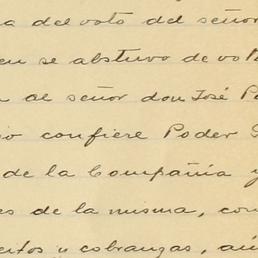 del voto del señor
se abstuvo de
al señor don José
confiere Poder
de la Compañía y
de la misma, con
y cobranzas,